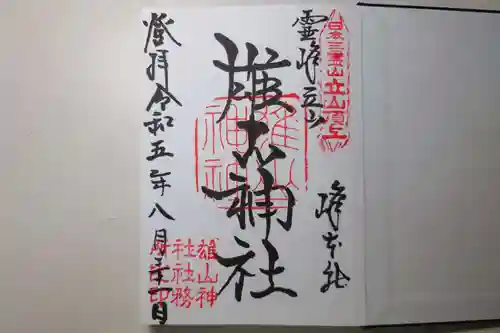 日本三霊山立山頂上
靈峰立山
峰本社
雄山神社
雄山
神社
登拝令和五年八月 一日
雄山神
社社務
所 印